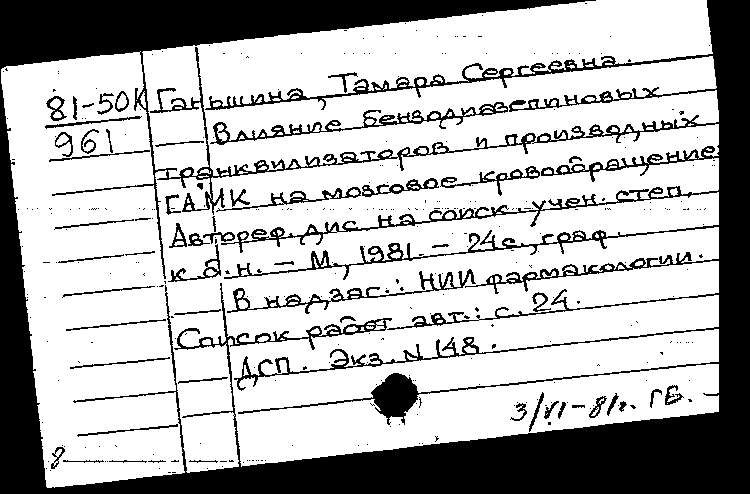 81-50К
961
Ганьшина, Тамара Сергеевна.
Влияние бензодиазепиновых
транквилизаторов и производных
ГАМК на мозговое кровообращение:
Автореф. дис. на соиск. учен. степ.
к.б.н. - М., 1981. - 24с., граф.
В надзаг.: НИИ фармакологии.
Список работ авт.: с. 24.
ДСП. Экз. N 148.
3/VI-81г. ГБ.
8